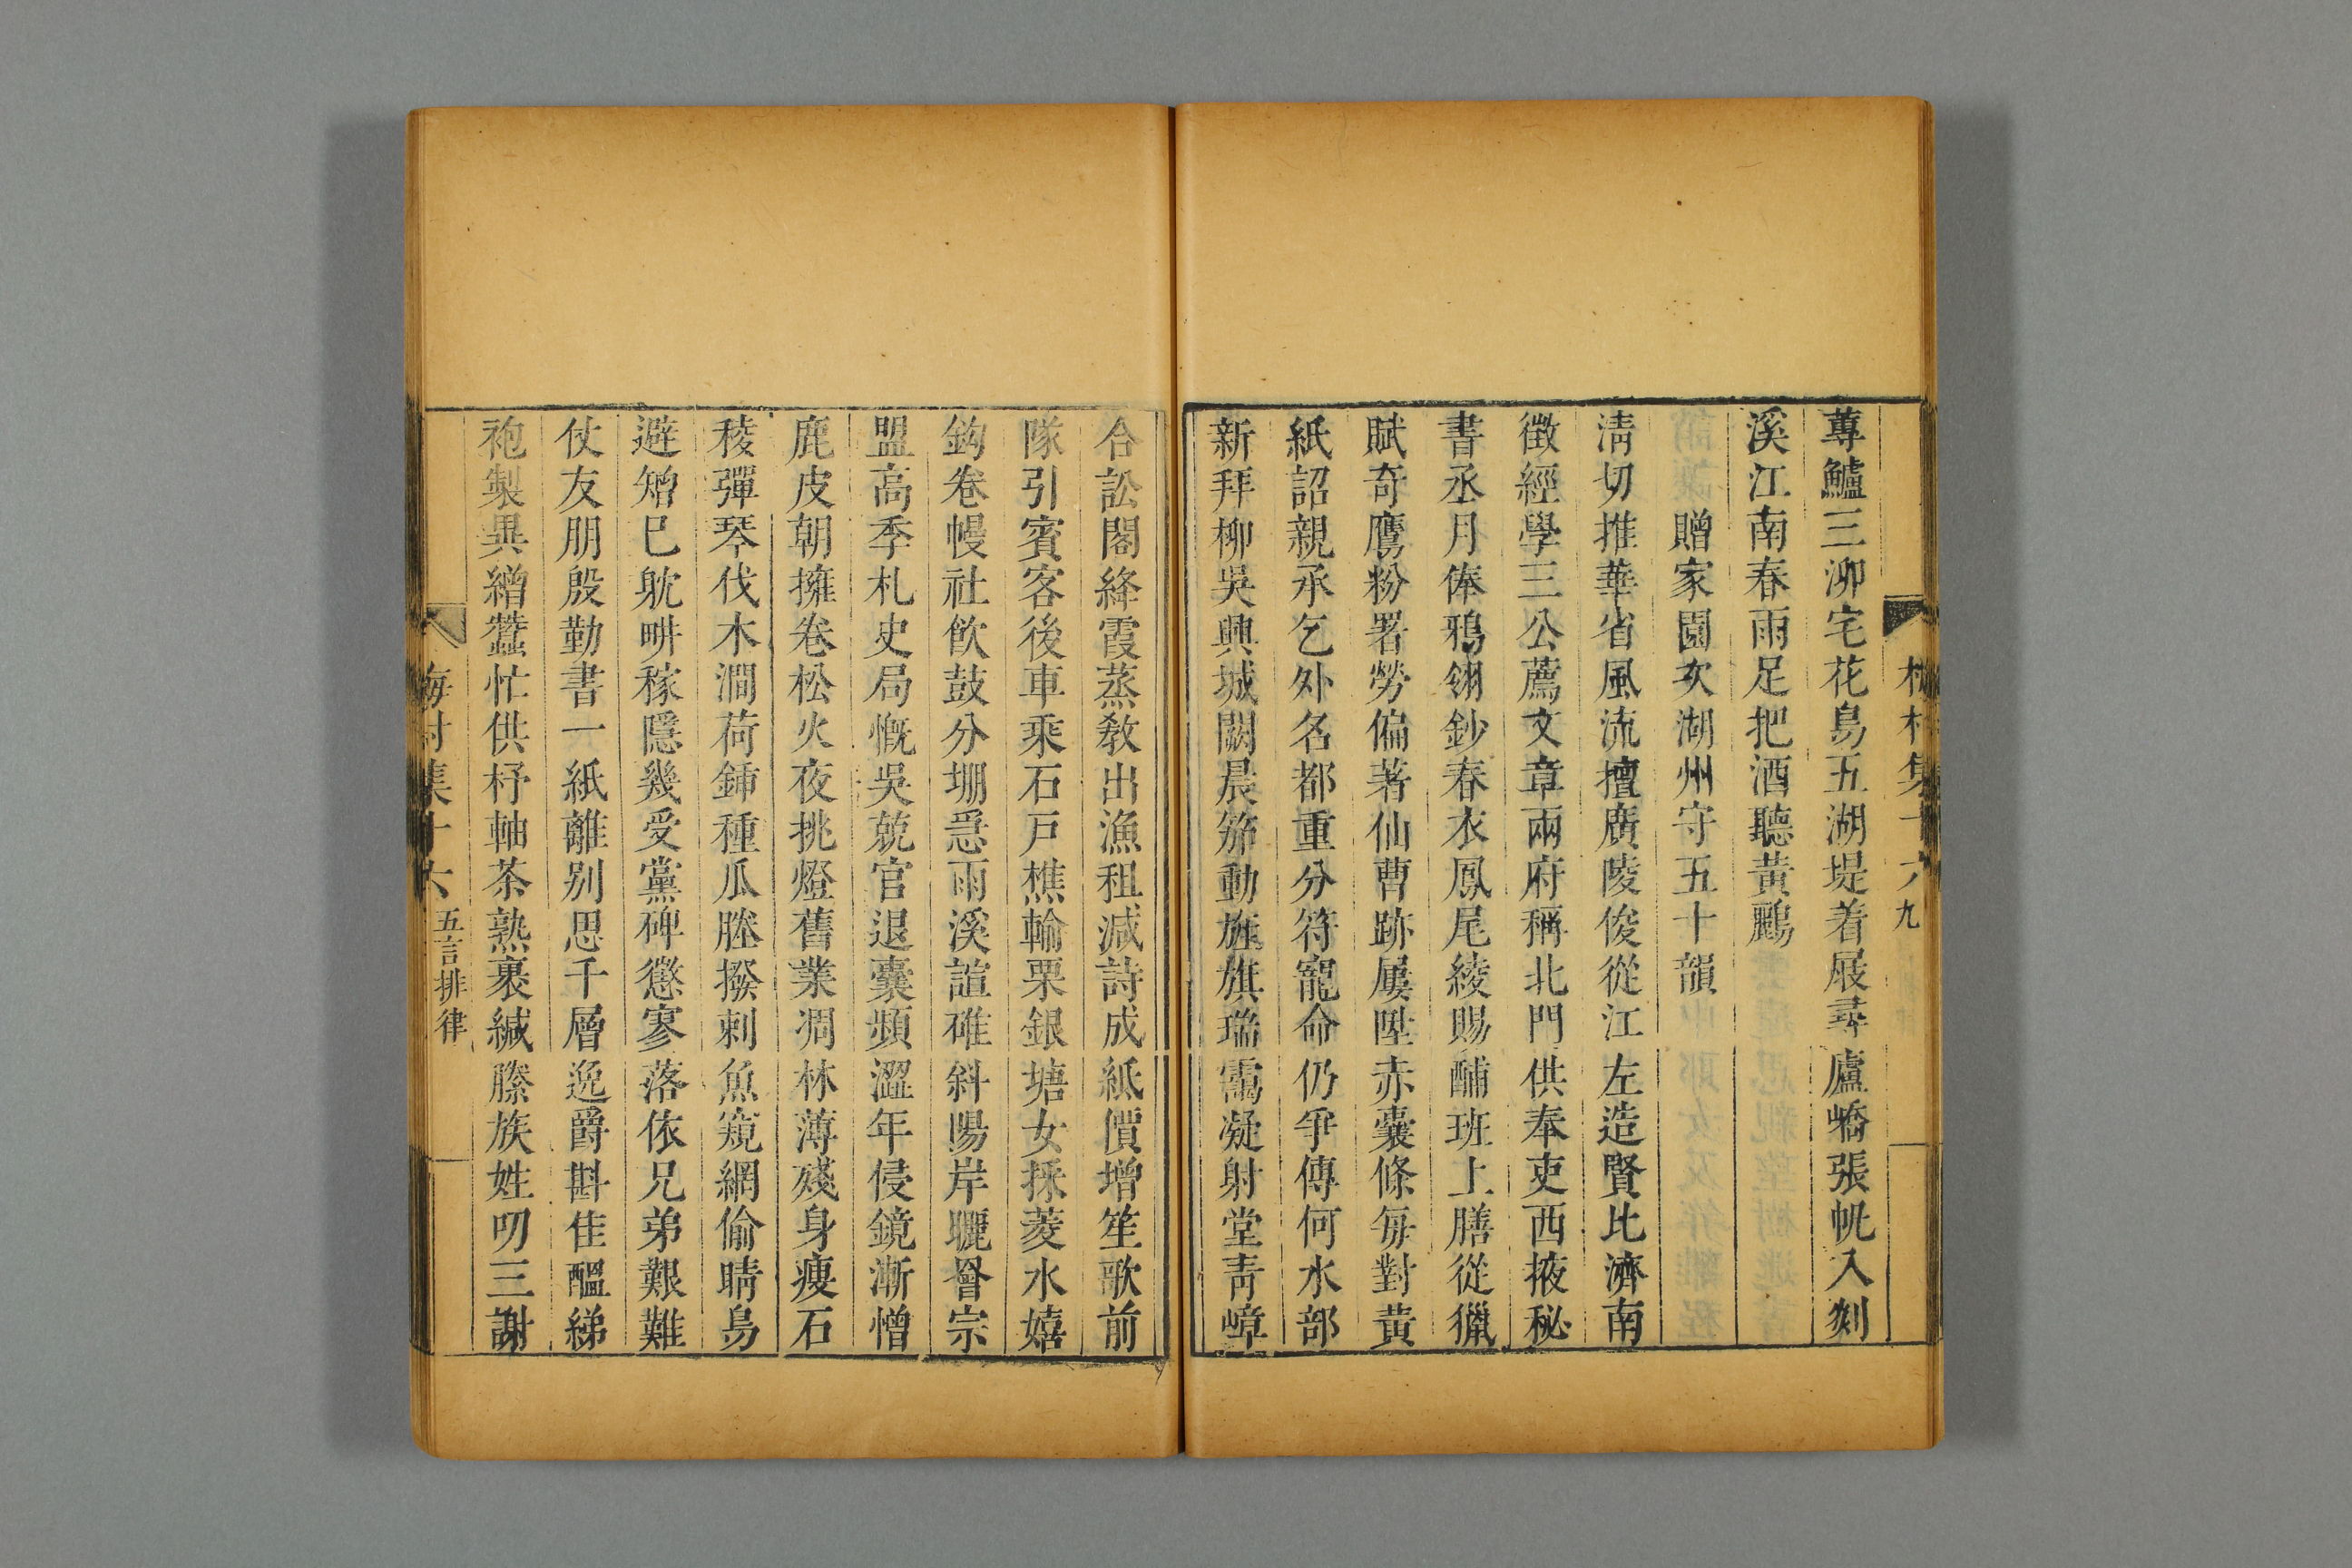 蓴鱸三泖宅花鳥五湖堤着屐尋廬嶠張帆入剡
溪江南春雨足把酒聽黃鸝
贈家園次湖州守五十韻
清切推華省風流擅廣陵俊從江左造賢比濟南
徵經學三公薦文章兩府稱北門供奉吏西掖秘
書丞月俸鴉翎鈔春衣鳳尾綾賜酺班上膳從獵
賦奇鷹粉署勞偏著仙曹跡屢陞赤囊條每對黃
紙詔親承乞外名都重分符寵命仍爭傳何水部
新拜柳吳興城闕晨笳動旌旗瑞靄凝射堂青嶂
合訟閣絳霞蒸敎出漁租減詩成紙價增笙歌前
隊引賓客後車乘石戸樵輸栗銀塘女採菱水嬉
鈎卷幔社飮鼓分堋急雨溪諠碓斜陽岸曬罾宗
盟高季札史局慨吳兢官退囊頻澀年侵鏡漸憎
鹿皮朝擁卷松火夜挑燈舊業凋林薄殘身瘦石
稜彈琴伐木澗荷鍤種瓜塍撥剌魚窺網偷晴鳥
避矰巳躭畊稼隱幾受黨碑懲寥落依兄弟艱難
仗友朋殷勤書一紙離别思千層逸爵斟佳醞綈
袍製異繒蠶忙供杼軸茶熟裹緘縢族姓叨三謝
梅村集十六 五言排律